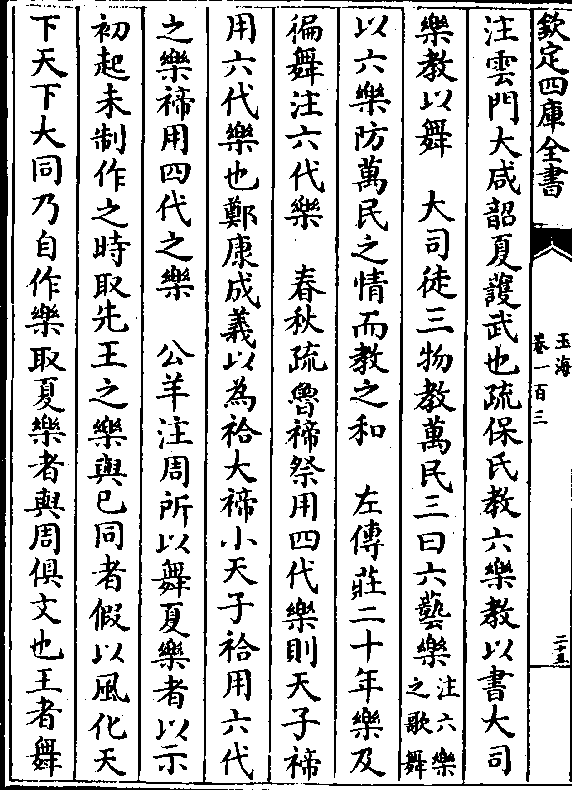 欽定四庫全書
玉海
卷一百三
二十五
注雲門大咸韶夏頀武也疏保氏教六樂教以書大司
樂教以舞　大司徒三物教萬民三曰六藝樂注六樂之歌舞
以六樂防萬民之情而教之和　左傳莊二十年樂及
徧舞注六代樂　春秋疏魯禘祭用四代樂則天子禘
用六代樂也鄭康成義以為祫大禘小天子祫用六代
之樂禘用四代之樂　公羊注周所以舞夏樂者以示
初起未制作之時取先王之樂與已同者假以風化天
下天下大同乃自作樂取夏樂者與周俱文也王者舞